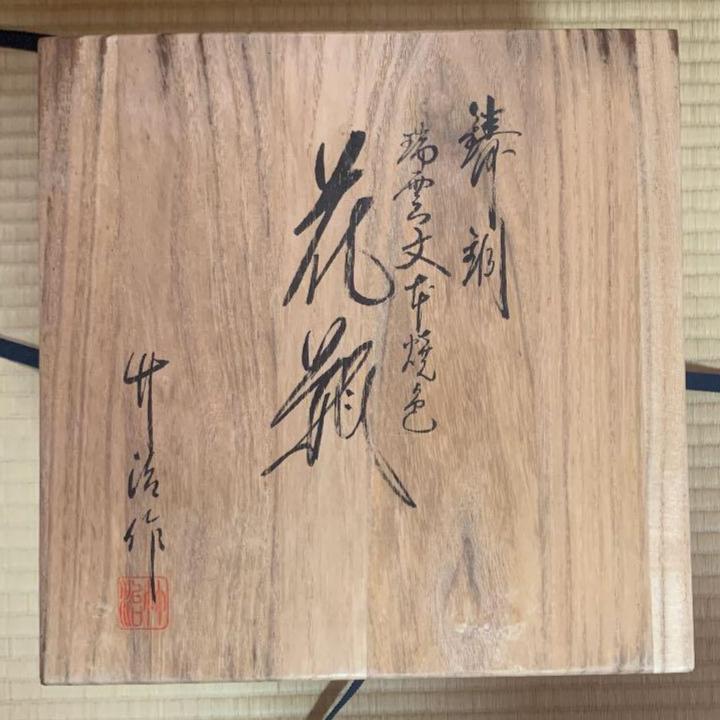 鋳銅
瑞雲文本焼色
花瓶
竹治作
竹治